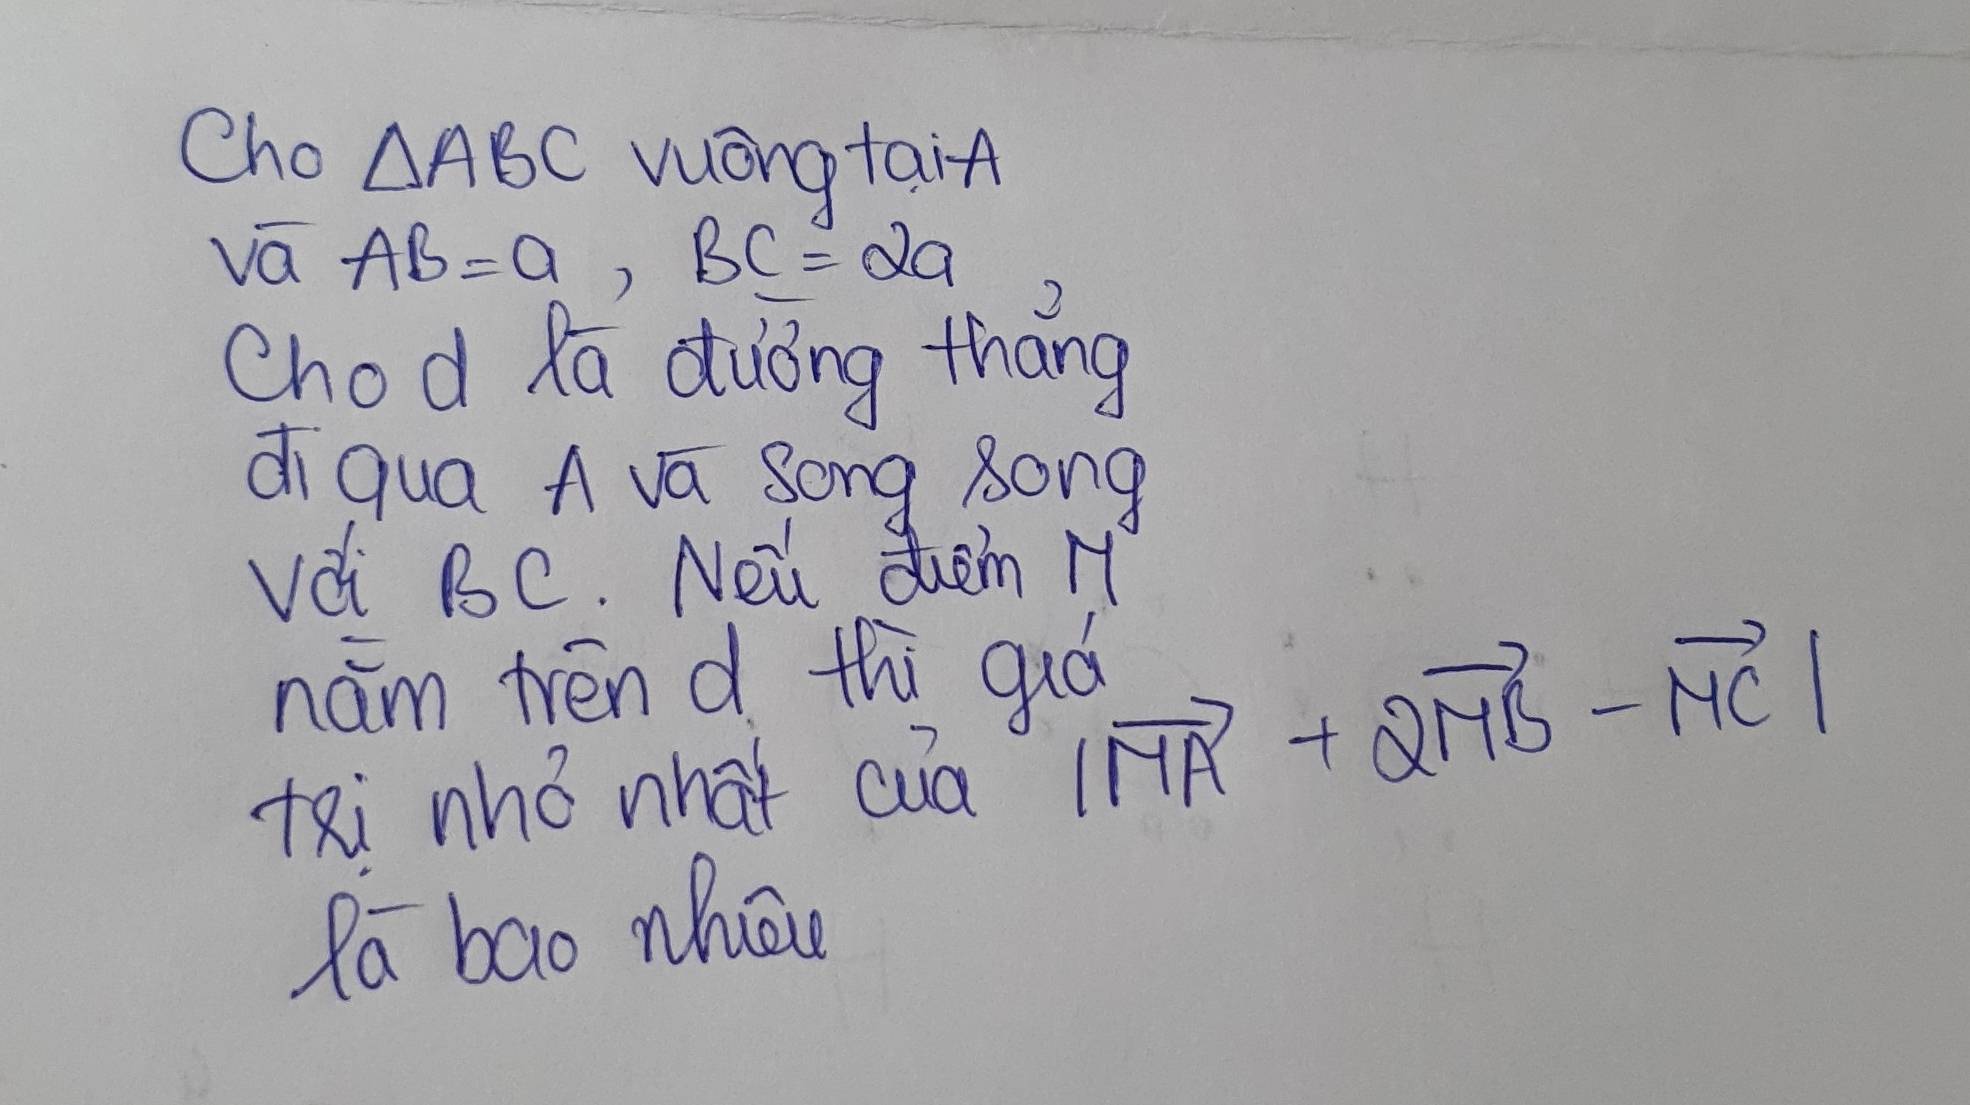 Cho ΔABC vuông tại A
và AB = a, BC = 2a
Cho d là đường thẳng
đi qua A và song song
với BC. Nếu điểm M
nằm trên d thì giá
trị nhỏ nhất của |\overrightarrow{MA} + 2\overrightarrow{MB} - \overrightarrow{MC}|
là bao nhiêu